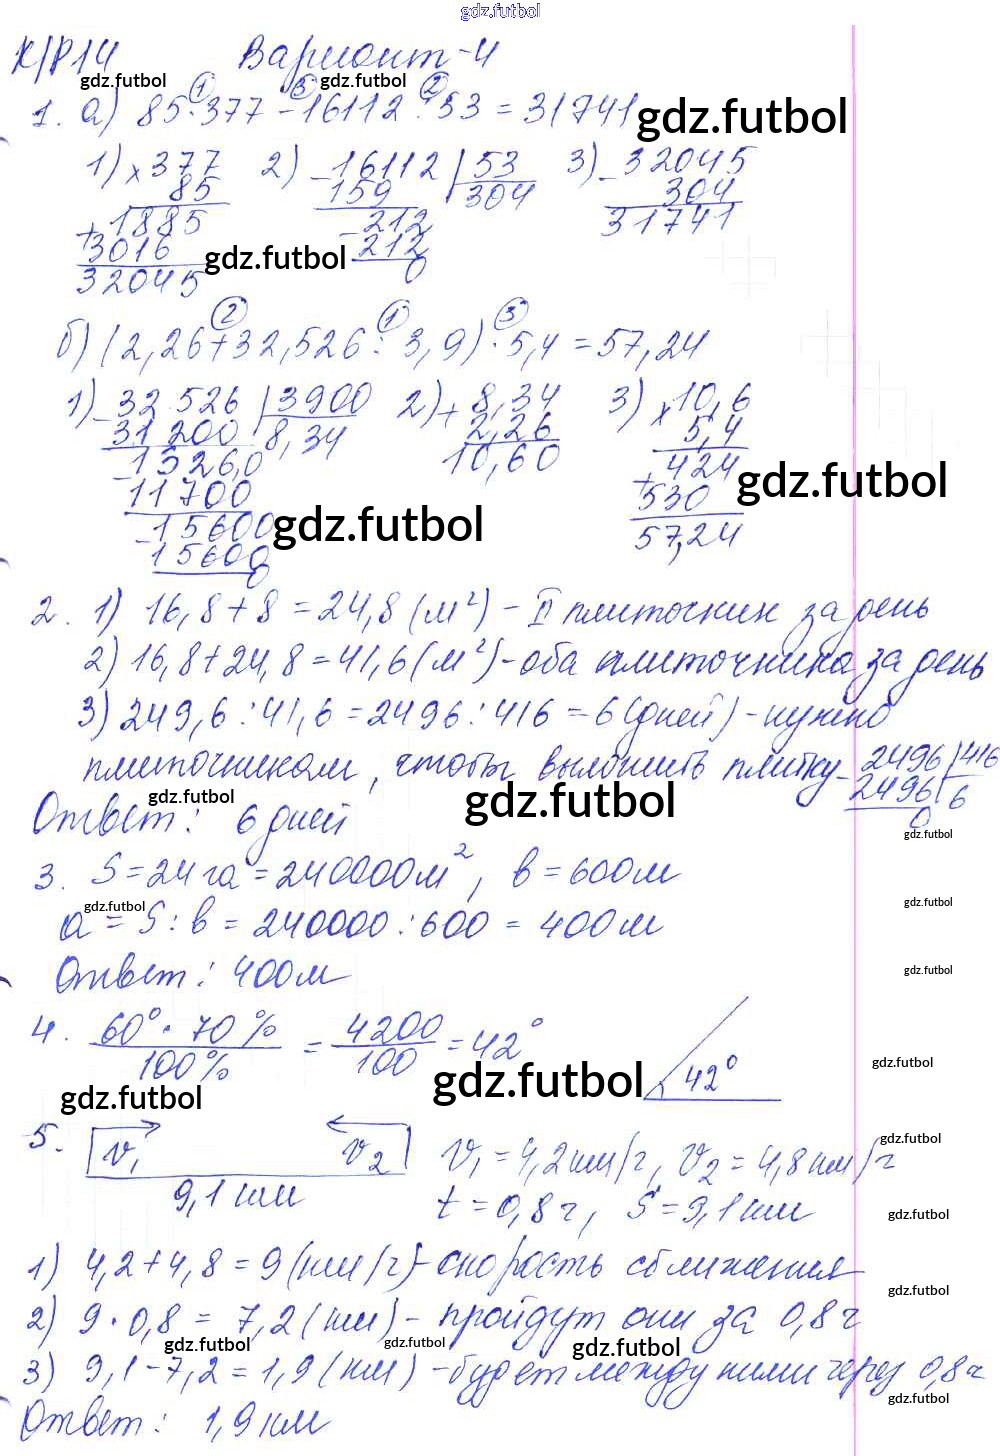 gdz.futbol
К/Р14 Вариант-4
gdz.futbol gdz.futbol
1 3 2
1. а) 85·377-16112:53=31741 gdz.futbol
1) ×377 2) -16112 | 53 3) -32045
85 159 304 304
+1885 -212 31741
3016 212
32045 gdz.futbol 0
2 1 3
б) (2,26+32,526:3,9)·5,4=57,24
1) -32 526 | 3900 2) + 8,34 3) ×10,6
31 200 8,34 2,26 5,4
-1326,0 10,60 +424 gdz.futbol
11700 530
-15600 gdz.futbol 57,24
15600
0
2. 1) 16,8+8=24,8(м²)-II плиточник за день
2) 16,8+24,8=41,6(м²)-оба плиточника за день
3) 249,6:41,6=2496:416=6(дней)-нужно
плиточникам, чтобы выложить плитку -2496 | 416
gdz.futbol gdz.futbol 2496 6
Ответ: 6 дней 0
gdz.futbol
3. S=24га=240000м², b=600м
gdz.futbol gdz.futbol
a=S:b=240000:600=400м
Ответ: 400м gdz.futbol
4. 60°·70%/100% = 4200/100 = 42° 42°
gdz.futbol gdz.futbol gdz.futbol
5. v₁ v₂ v₁=4,2км/ч, v₂=4,8км/ч gdz.futbol
9,1км t=0,8ч, S=9,1км gdz.futbol
1) 4,2+4,8=9(км/ч)-скорость сближения
gdz.futbol
2) 9·0,8=7,2(км)-пройдут они за 0,8ч
gdz.futbol gdz.futbol gdz.futbol
3) 9,1-7,2=1,9(км)-будет между ними через 0,8ч
gdz.futbol
Ответ: 1,9км